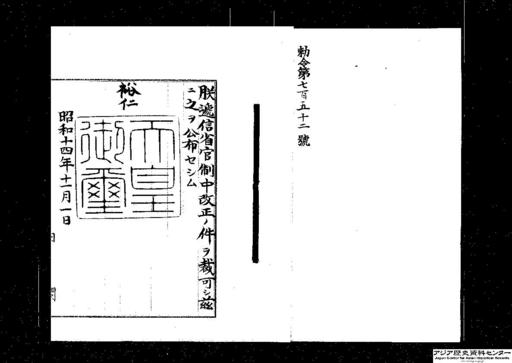 勅令第七百五十二號
朕遞信省官制中改正ノ件ヲ裁可シ茲
ニ之ヲ公布セシム
裕仁
天皇
御璽
昭和十四年十一月一日
アジア歴史資料センター
Japan Center for Asian Historical Records